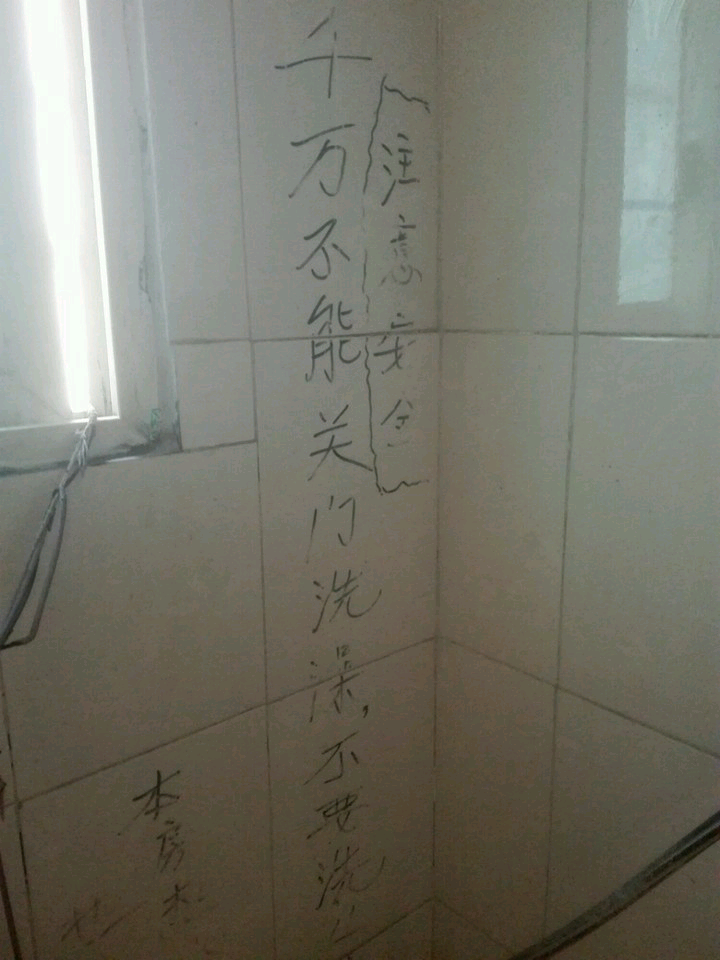 注意安全
千万不能关门洗澡,不要洗
本房